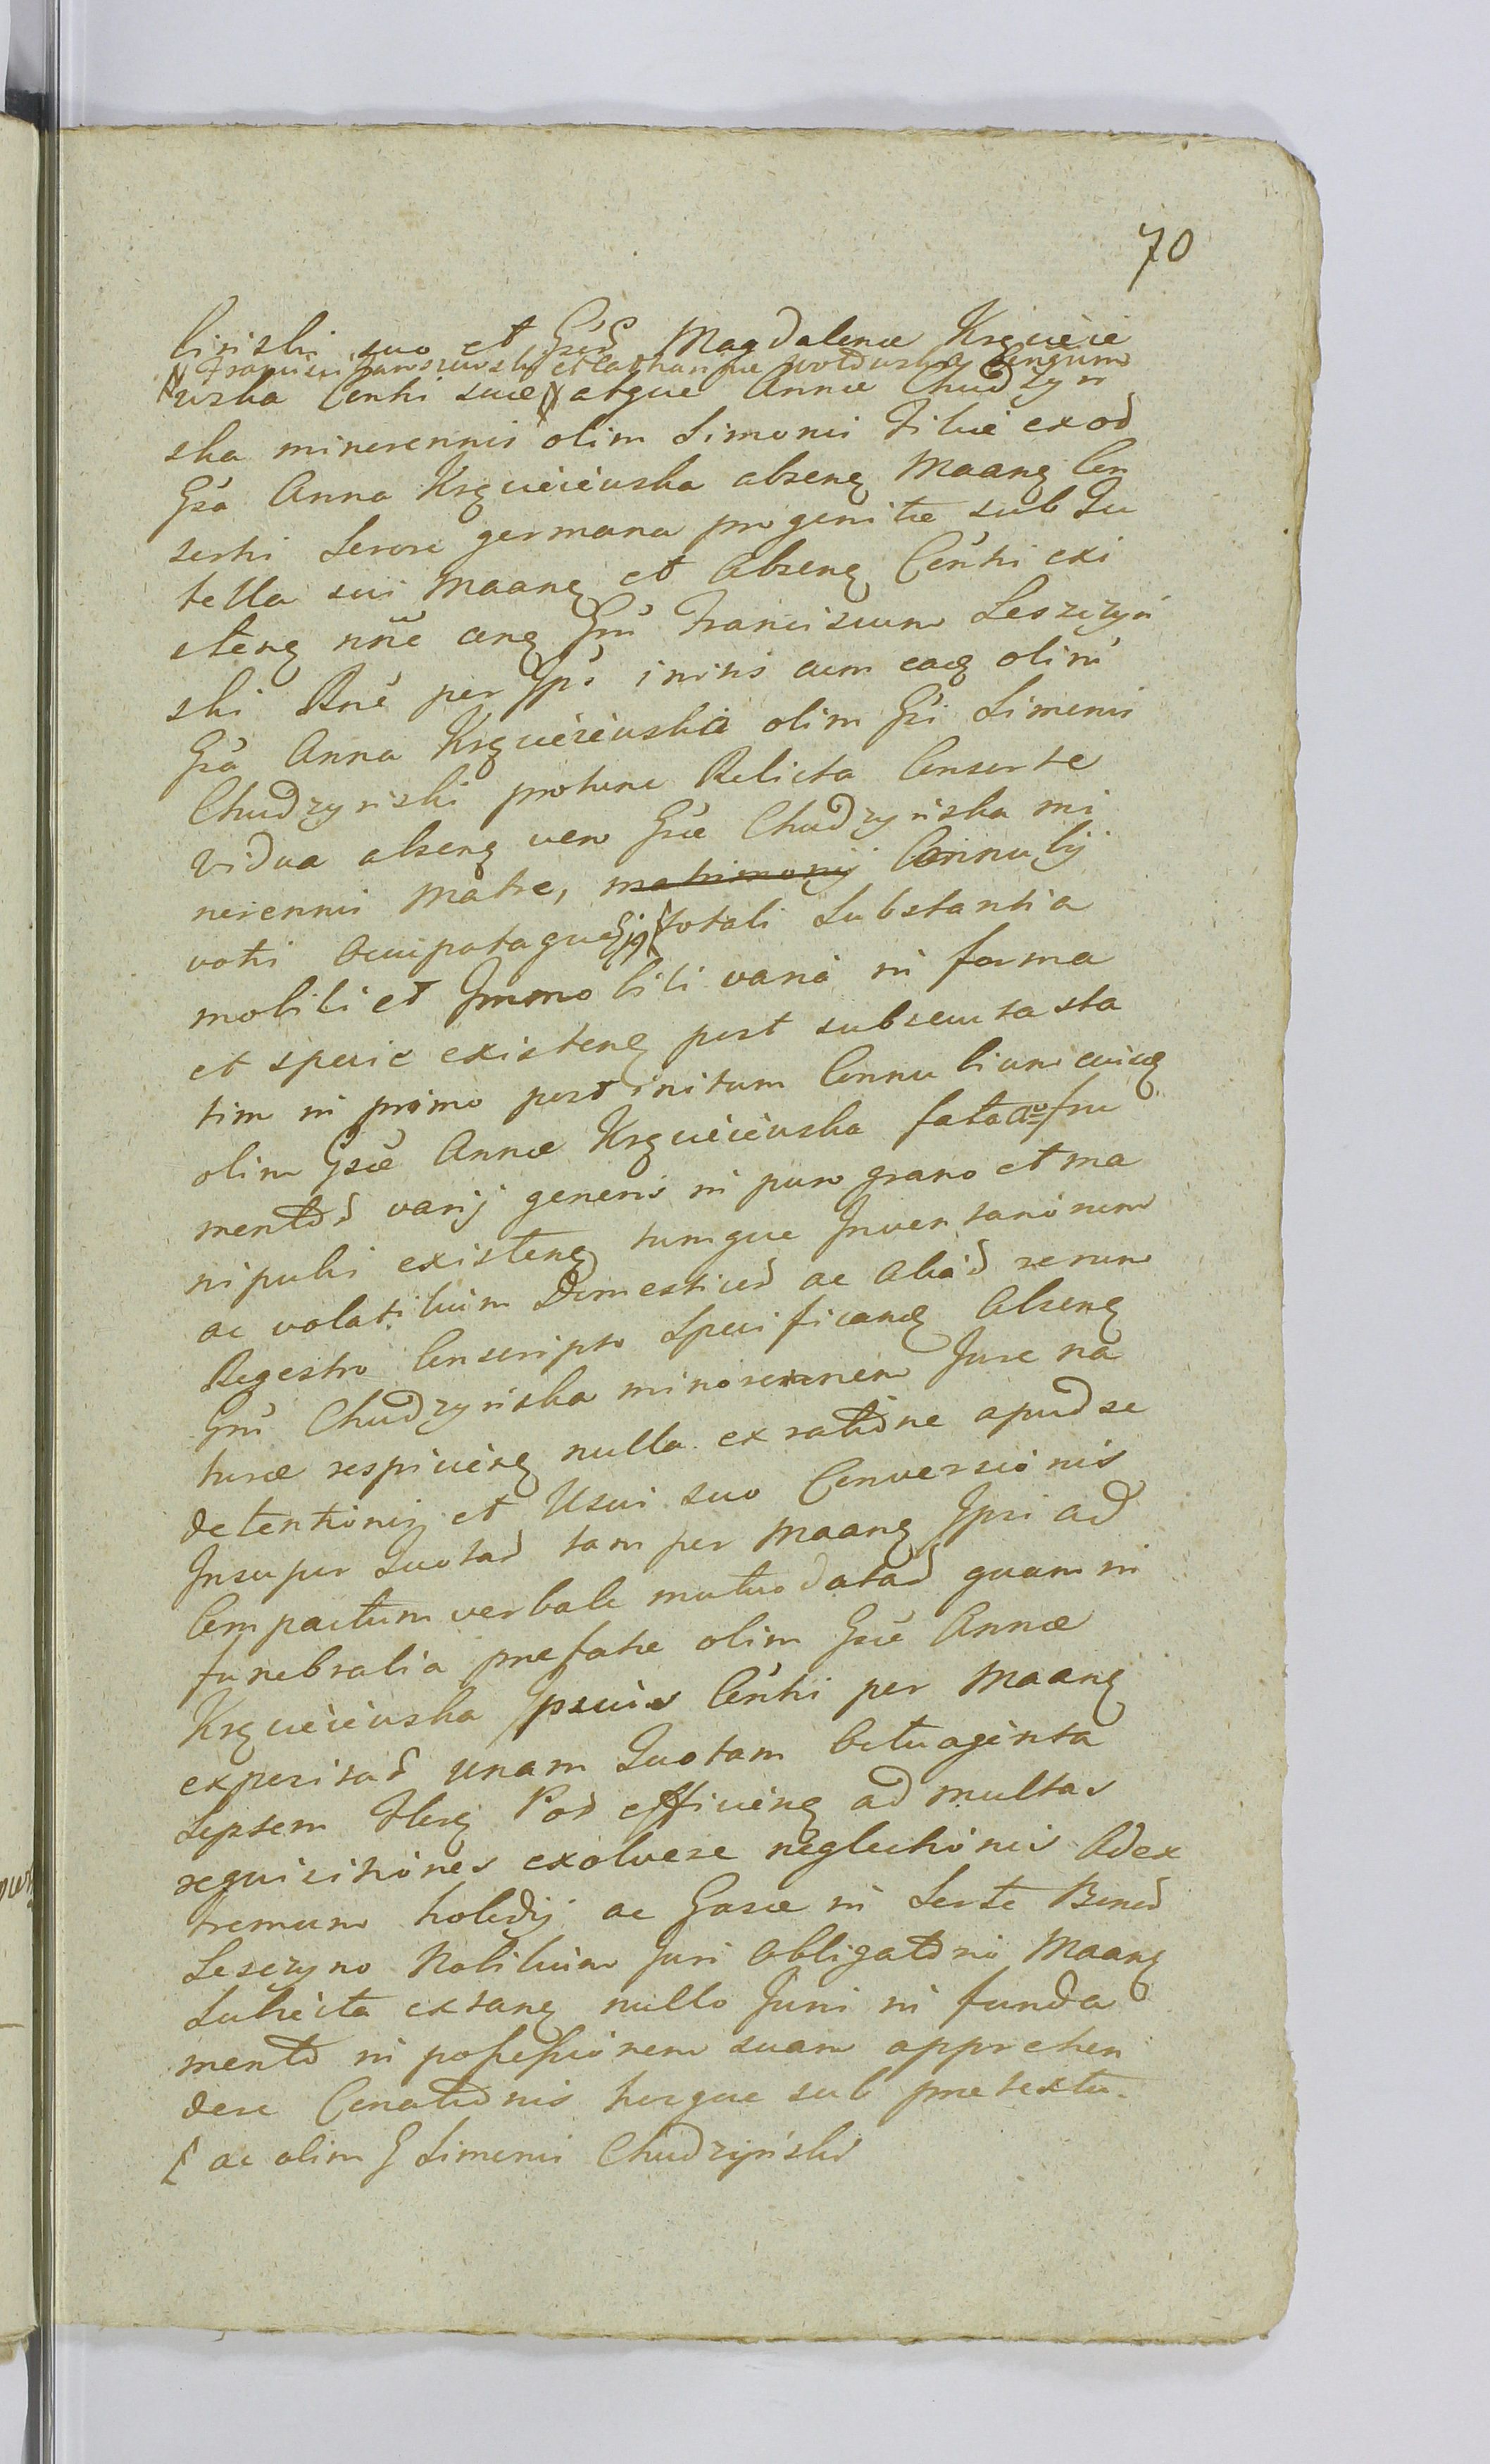 70
binski suo et Gsæ Magdalenæ Krzęcie
Francisci et Catharinæ
wska Conthi suæ atque Annæ Chudzyn
ska minorennis olim Simonis Filiæ exod
Gsa Anna Kręcieiewska absenę Maanę Con
sorthi Sorore germana progenitæ sub Tu
tella sui Maanę et absenę Conthi exi
stenę nne anę Gsm Franciscum Leszczyń
ski Rne per Ipm initis cum eaę olim
Gsa Anna Kręcieiewska olim Gsi Simonis
Chudzynski protunc Relicta Consorte
vidua absenę vero Gsæ Chudzynska mi
norennis Matre, matrimonij Connubij
voti Occupataque totali Substantia
mobili et Immobili varia in forma
et specie existenę post subsecuta sta
tim in primo post initum Connubium eiusę
olim Gsæ Annæ Kręcieiewska fata fru
mentod varij generis in puro grano et ma
nipulis existenę tumque Inventariorum
ac volatilium Domesticod ac aliad rerum
Regestro Conscripto Specificandę Absenę
Gsm Chudzynska minorennem Jure na
turæ respicienę nulla ex ratione apud se
detentionis et Usui suo Conversionis
Insuper Quotad tam per Maanę Ipsi ad
Compactum verbale mutuo datad quam in
funebralia præfatæ olim Gsæ Annæ
Kręcieiewska Ipsius Conthi per Maanę
experitad unam Quotam Octuaginta
Septem Flor Pol efficienę ad multas
requisitiones exolvere neglectionis Adex
tremum holedij ac Gasæ in Sorte Bonod
Leszczyno Nobilium Juri Obligatorio Maanę
Subiecta extanę nullo Juris in funda
mento in possessionem suam apprehen
dere Conationis hocque sub prætextu
ac olim G Simonis Chudzyński